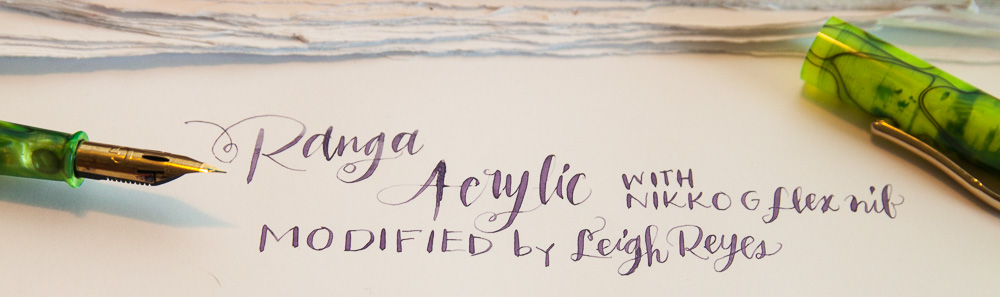 Ranga
Acrylic WITH
NIKKO G flex nib
MODIFIED by Leigh Reyes